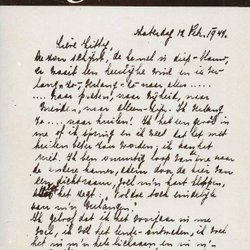 Zaterdag 12 Feb. 1944.
Lieve Kitty,
De zon schijnt, de hemel is diep-blauw,
er waait een heerlijke wind en ik ver-
lang - zo, verlang - zo naar alles ....
naar praten, naar vrijheid, naar
vrienden, naar alleen-zijn. Ik verlang
zo .... naar huilen! Ik heb een gevoel in
me of ik spring en ik weet dat het met
huilen beter zou worden; ik kan het
niet. Ik ben onrustig loop van de ene naar
de andere kamer, adem door de kier van
een dicht raam, voel m'n hart kloppen,
alsof het zegt: Voldoe toch eindelijk
aan m'n verlangens.
Ik geloof dat ik het voorjaar in me
voel, ik voel het lente-ontwaken, ik voel
het in m'n hele lichaam en in m'n